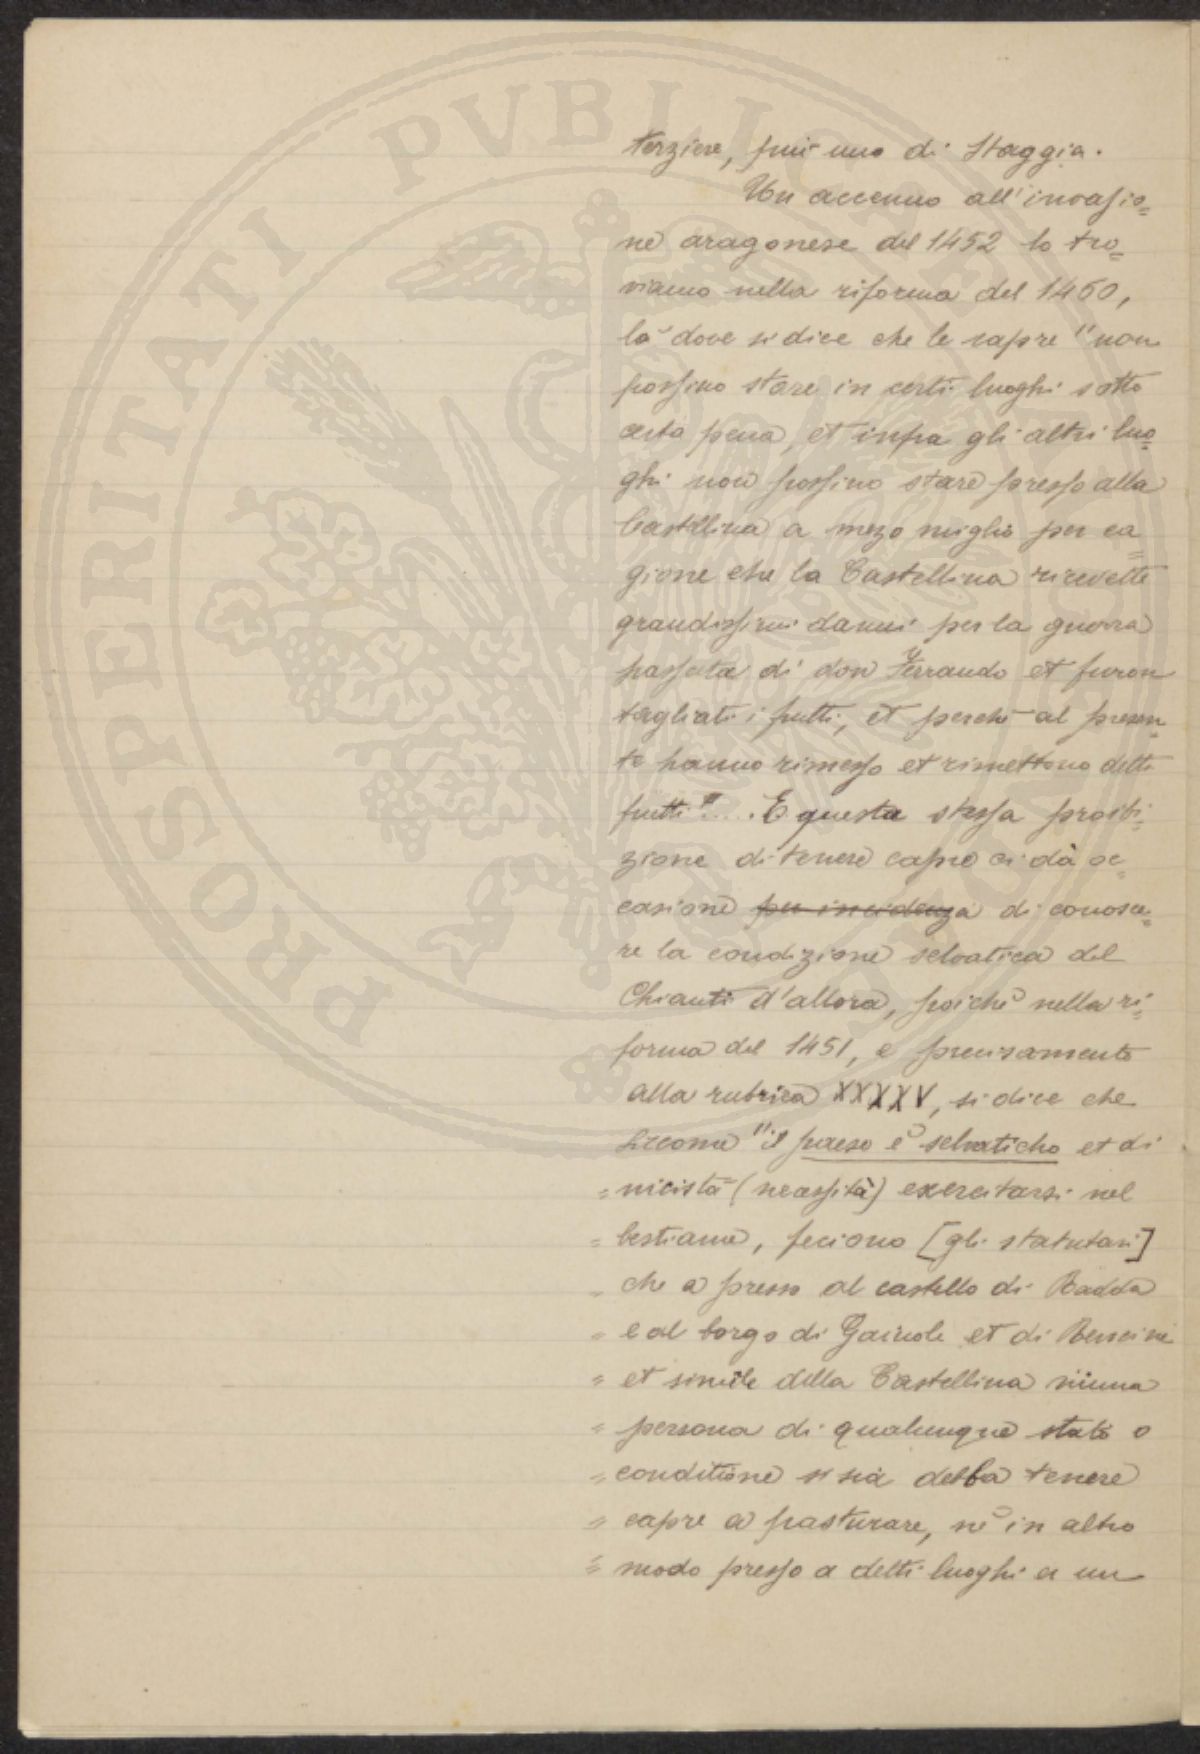 PROSPERITATI PVBLICAE
terziere, più uno di Staggia.
Un accenno all'invasio=
ne aragonese del 1452 lo tro=
viamo nella riforma del 1460,
là dove si dice che le capre "non
possino stare in certi luoghi sotto
certa pena, et infra gli altri luo=
ghi non possino stare presso alla
Castellina a mezo miglio per ca=
gione che la Castellina ricevette
grandissimi danni per la guerra
passata di don Ferrando et furon
tagliati i frutti, et perchè al presen=
te hanno rimesso et rimettono detti
frutti"..... E questa stessa proibi=
zione di tenere capre ci dà oc=
casione per incidenza di conosce=
re la condizione selvatica del
Chianti d'allora, poichè nella ri=
forma del 1451, e precisamente
alla rubrica XXXXV, si dice che
siccome "il paeso è selvaticho et di
" nicistà (necessità) exercitarsi nel
" bestiame, feciono [gli statutari]
" che a presso al castello di Radda
" e al borgo di Gaiuole et di
" et simile della Castellina niuna
" persona di qualunque stato o
" conditione si sia debba tenere
" capre a pasturare, nè in altro
" modo presso a detti luoghi a un